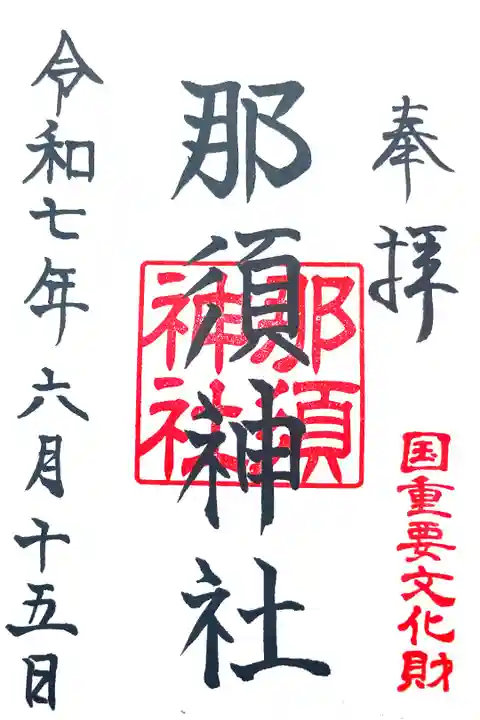 奉拝
国重要文化財
那須神社
那須神社
令和七年六月十五日